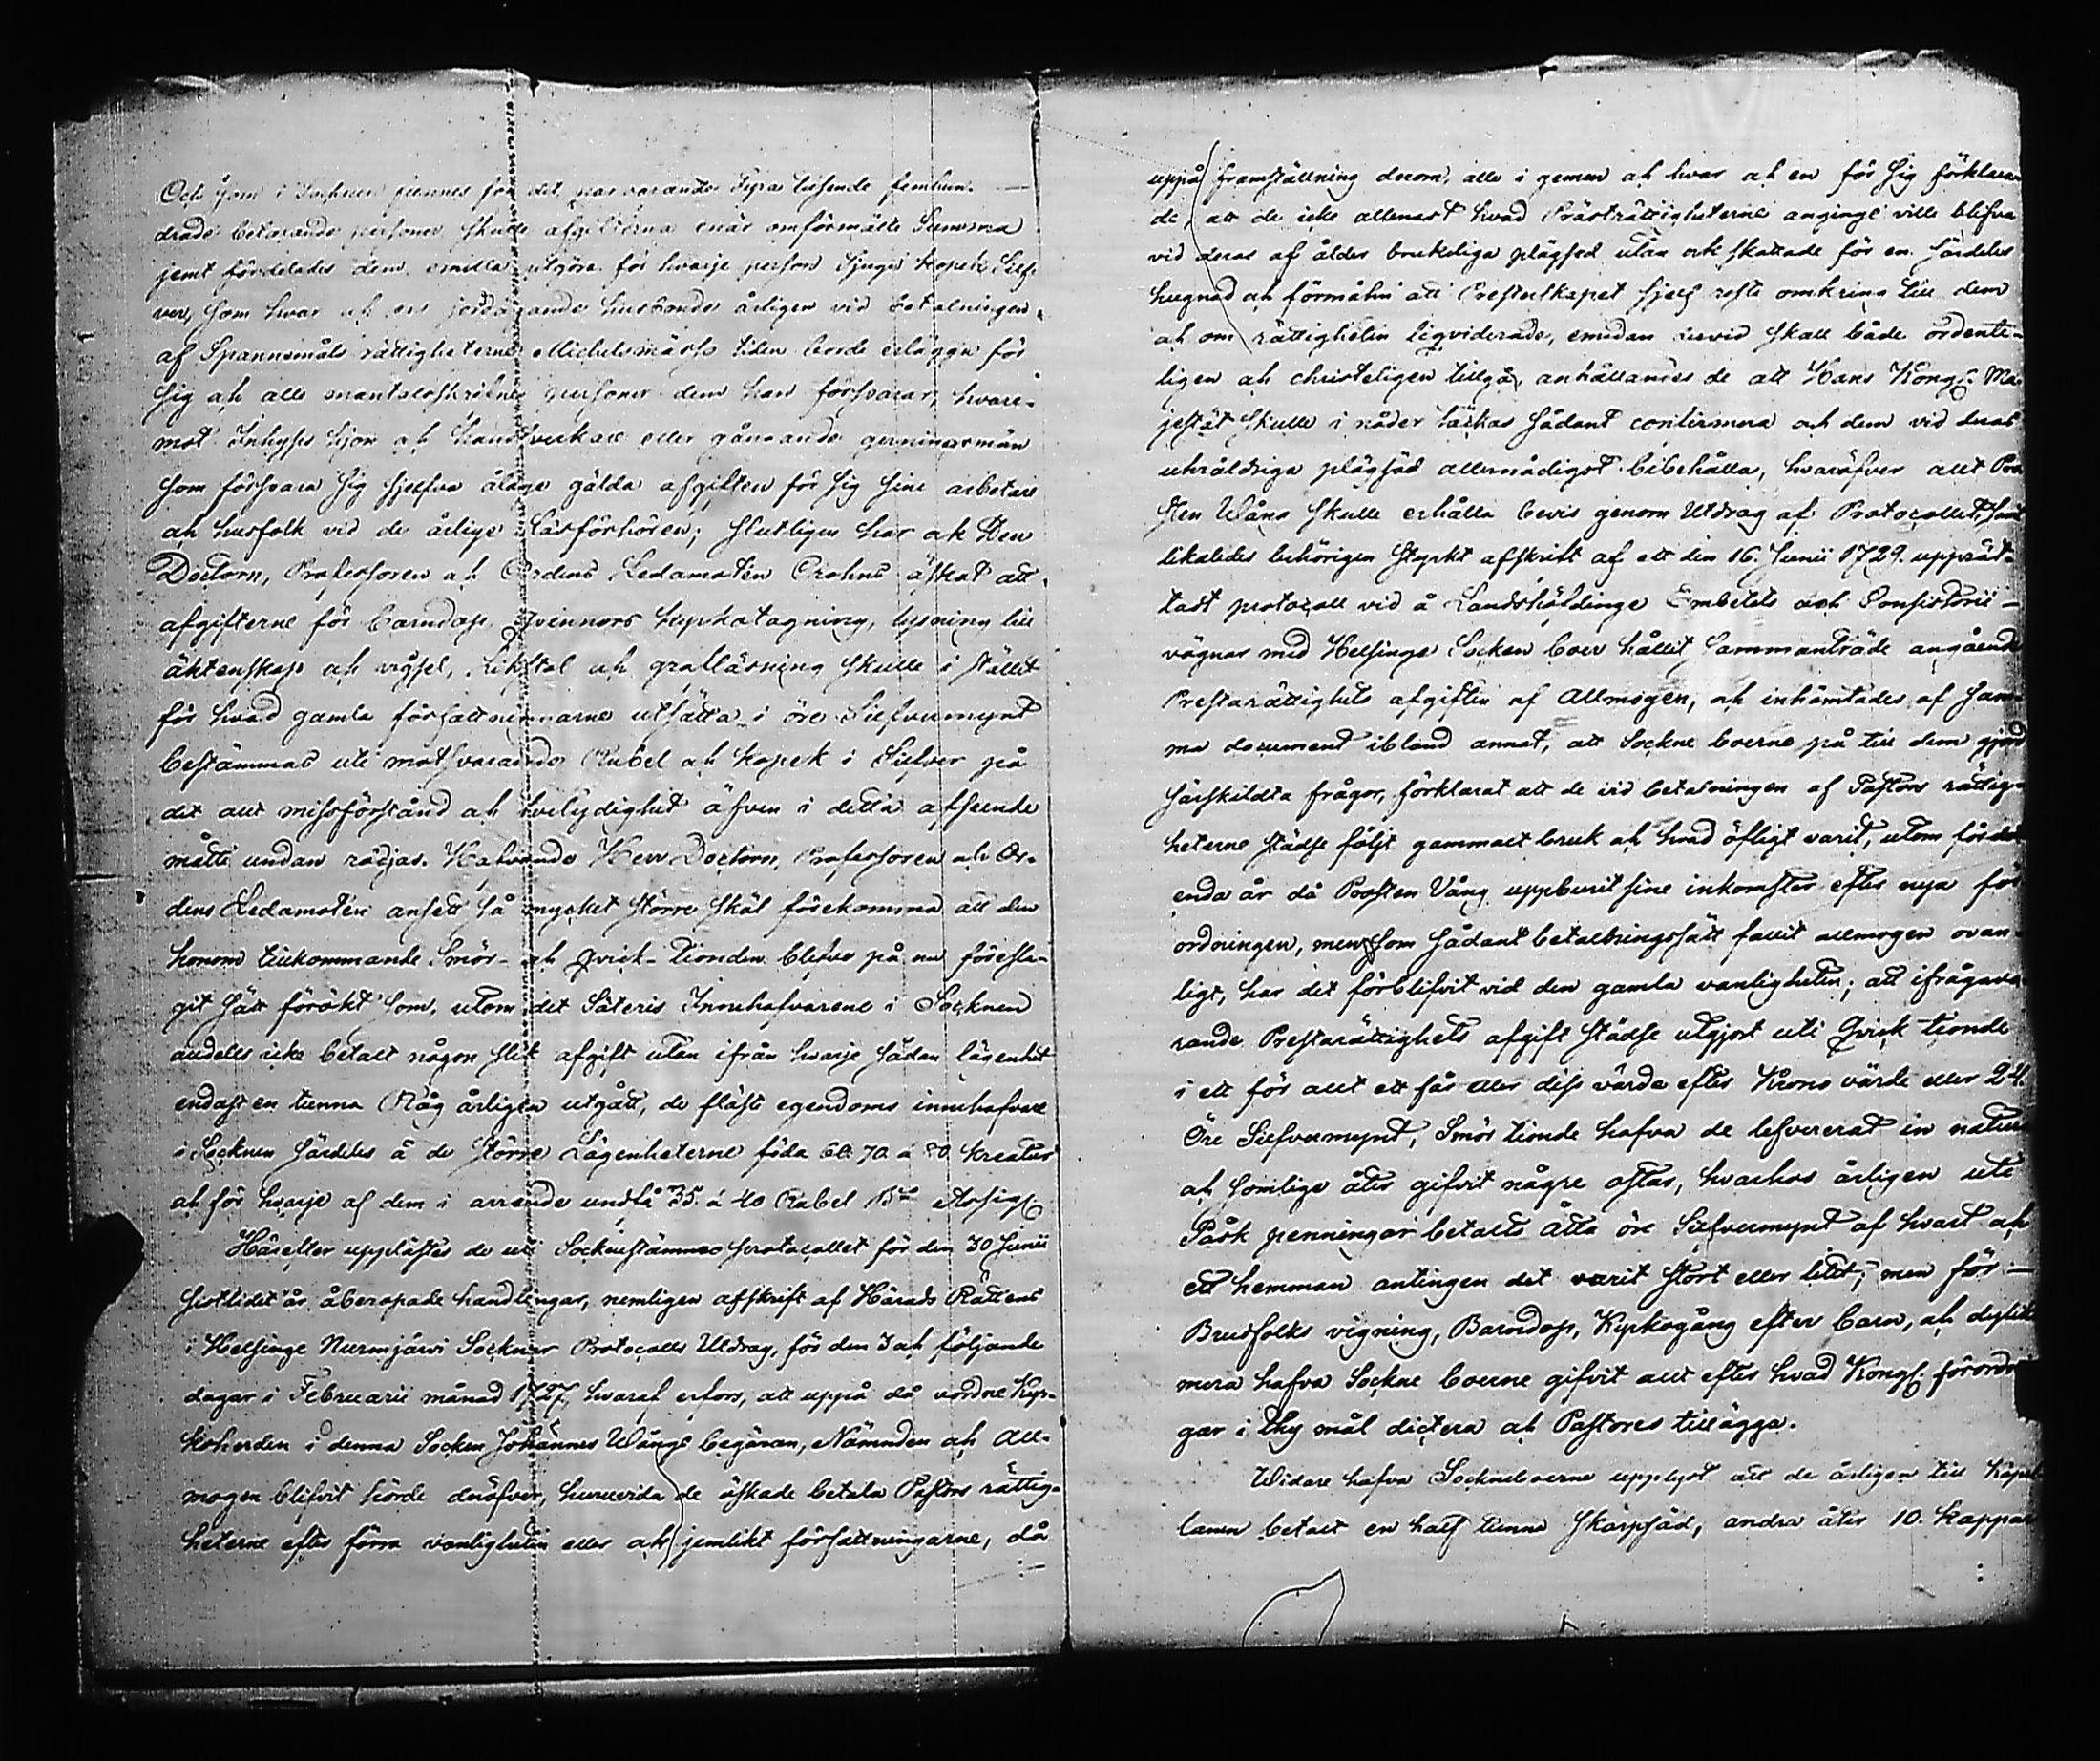 Och som i Socknen finnes för det närvarande Fyra tusende femhun-
drade betalande personer skulle afgifterna enär omförmälte Summa
jemt fördelades dem emillan utgöra för hvarje person Sjugu kopek Silf-
ver, som hvar och en jordägande husbonde årligen vid betalningen
af Spannemåls rättigheterne Michelsmässo tiden borde erlägga för
sig och alle mantalsskrifne personer dem han försvarar, hvare-
mot Inhyses hjon och handtverkare eller gångande gerningsmän
som försvara sig sjelfva ålage gälda afgiften för sig sine arbetare
och husfolk vid de årlige Läsförhören; slutligen har ock Herr
Doctorn, Professoren och Ordens Ledamoten Crohns äskat att
afgifterne för barndop, qvinnors kyrkotagning, lysning till
äktenskap och vigsel, Likstol och grafläsning skulle i stället
för hvad gamla författningarne utsätta i öre Silfvermynt
bestämmas uti motsvarande Rubel och kopek i Silfver på
det allt missförstånd och tvetydighet äfven i detta afseende
måtte undan rödjas. Hafvande Herr Doctorn, Professoren och Or-
dens Ledamoten ansett så mycket större skäl förekomma att den
honom tillkommande Smör- och Qvick-tionden blefve på nu föresla-
git sätt förökt som, utom det Säteris Innehafvarene i Socknen
audeles icke betalt någon slik afgift utan ifrån hvarje sådan lägenhet
endast en tunna Råg årligen utgått, de fläste egendoms innehafvare
i Socknen särdeles å de större Lägenheterne föda 60. 70 a 80. kreatur
och för hvarje af dem i arrende undfå 35. á 40 Rubel B:co Assign:
Härefter upplästes de uti Sockenstämmo protocollet för den 30 Junii
sistlidet år åberopade handlingar, nemligen afskrift af Härads Rättens
i Helsinge Nurmijärvi Socknar Protocolls Utdrag, för den 3 och följande
dagar i Februarii månad 1727, hvaraf erfors, att uppå då vordne Kyr-
koherden i denna Socken Johannes Wångs begäran, Nämnden och All-
mogen blifvit hörde deröfver, huruvida de åstade betala Pastors rättig-
heterne efter förra vanligheten eller och jemlikt författningarne, då
uppå framställning derom, alle i gemen och hvar och en för sig förklara-
de, att de icke allenast hvad Prästrättigheterne anginge ville blifva
vid deras af ålder brukeliga plägsed utan ock skattade för en särdeles
hugnad och förmåhn att Presterskapet sjelf reste omkring till dem
och om rättigheten liqviderade, emedan dervid skall både ordente-
ligen och christeligen tillgå, anhållandes de att Hans Kongl: Ma-
jestät skulle i nåder täckas sådant confirmera och dem vid deras
uhråldriga plägsäd allernådigst bibehålla, hvaröfver allt Pro-
sten Wång skulle erhålla bevis genom Utdrag af Protocollet, samt
likaledes behörigen styrkt afskrift af ett den 16. Junii 1729. upprät-
tadt protocoll vid å Landshöfdinge Embetets och Consistorii
vägnar med Helsinge Socken boer hållit Sammanträde angående
Prestarättighets afgiften af Allmogen, och inhämtades af sam-
ma document ibland annat, att Sockne boerne på till dem gjorde
särskildta frågor, förklarat att de vid betalningen af Pastors rättig-
heterne städse följt gammalt bruk och hvad öfligt varit, utom för det
enda år då Prosten Vång uppburit sine inkomster efter nya för-
ordningen, men som sådant betalningssätt fallit allmogen ovan-
ligt, har det förblifvit vid den gamla vanligheten; att ifrågava-
rande Prestarättighets afgift städse utgjort uti Qvick tionde
i ett för allt ett får eller dess värde efter Krono värde eller 24.
Öre Silfvermynt, Smör tionde hafva de lefvererat in natura
och somlige åter gifvit några ostar, hvarhos årligen uti
Påsk penningar betalts åtta öre Silfvermynt af hvart och
ett hemman antingen det varit stort eller litet; men för
Brudfolks vigning, Barndop, Kyrkogång efter barn, och dyslikt
mera hafva Sockne boerne gifvit allt efter hvad Kongl: förordnin-
gar i thy mål dictera och Pastores tillägga.
Widare hafva Socknboerne upplyst att de årligen till Kapel-
lanen betalt en half tunna skärpsäd, andra åter 10. kappar